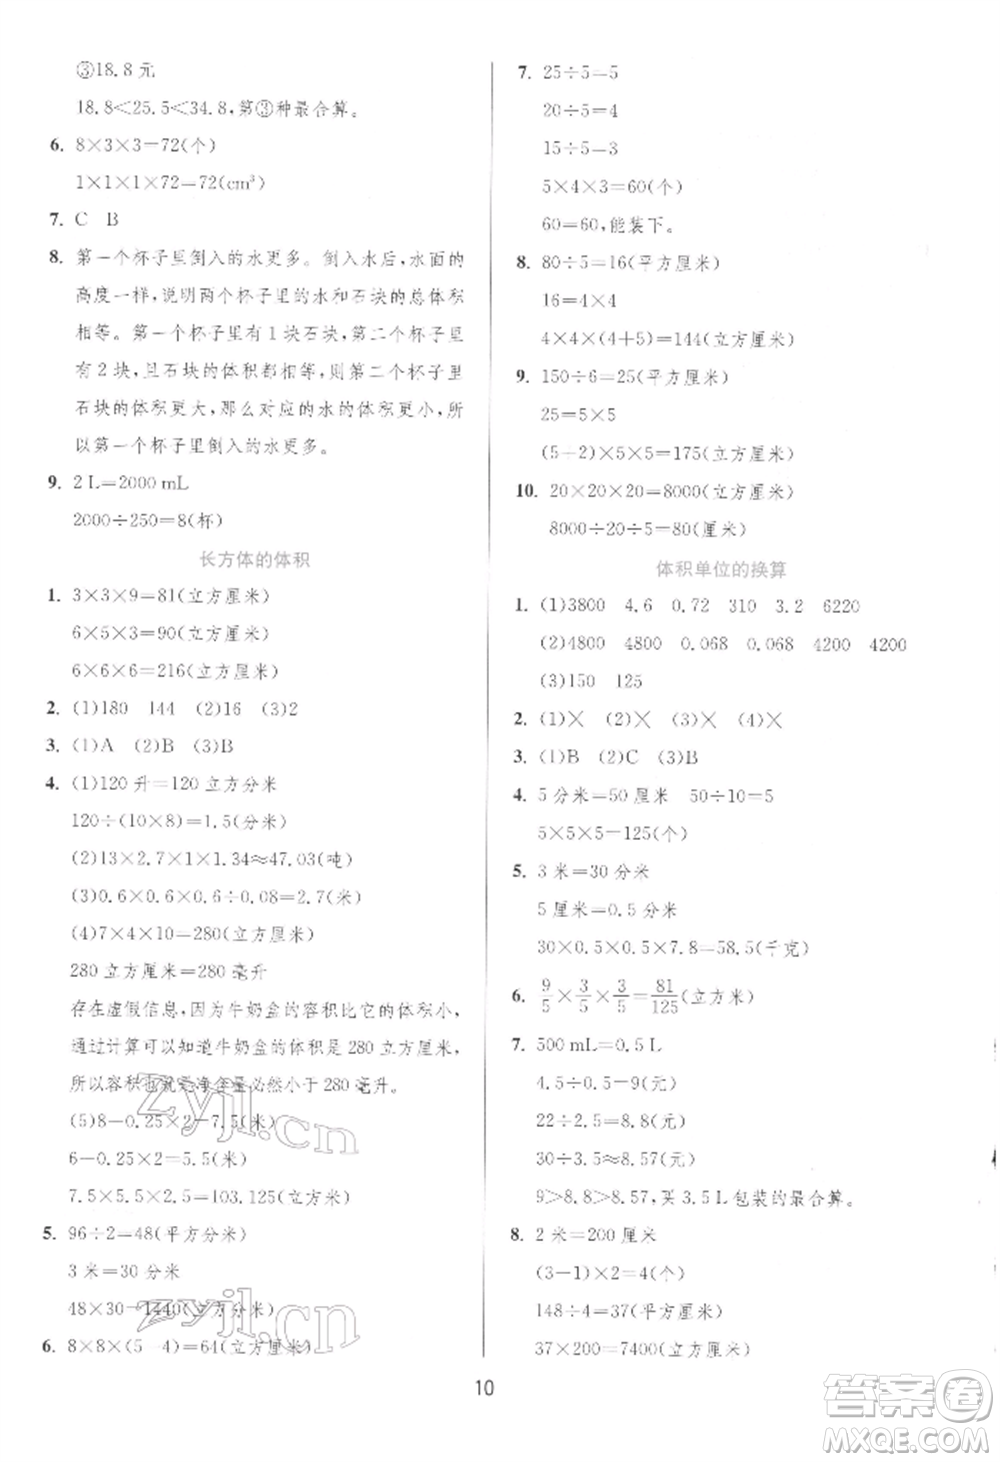 ③18.8元
18.8<25.5<34.8,第③种最合算。
6. 8×3×3=72(个)
1×1×1×72=72(cm³)
7. C B
8. 第一个杯子里倒入的水更多。倒入水后,水面的
高度一样,说明两个杯子里的水和石块的总体积
相等。第一个杯子里有1块石块,第二个杯子里
有2块,且石块的体积都相等,则第二个杯子里
石块的体积更大,那么对应的水的体积更小,所
以第一个杯子里倒入的水更多。
9. 2 L=2000 mL
2000÷250=8(杯)
长方体的体积
1. 3×3×9=81(立方厘米)
6×5×3=90(立方厘米)
6×6×6=216(立方厘米)
2. (1)180 144 (2)16 (3)2
3. (1)A (2)B (3)B
4. (1)120升=120立方分米
120÷(10×8)=1.5(分米)
(2)13×2.7×1×1.34≈47.03(吨)
(3)0.6×0.6×0.6÷0.08=2.7(米)
(4)7×4×10=280(立方厘米)
280立方厘米=280毫升
存在虚假信息,因为牛奶盒的容积比它的体积小,
通过计算可以知道牛奶盒的体积是280立方厘米,
所以容积也就是净含量必然小于280毫升。
(5)8-0.25×2=7.5(米)
6-0.25×2=5.5(米)
7.5×5.5×2.5=103.125(立方米)
5. 96÷2=48(平方分米)
3米=30分米
48×30=1440(立方分米)
6. 8×8×(5-4)=64(立方厘米)
7. 25÷5=5
20÷5=4
15÷5=3
5×4×3=60(个)
60=60,能装下。
8. 80÷5=16(平方厘米)
16=4×4
4×4×(4+5)=144(立方厘米)
9. 150÷6=25(平方厘米)
25=5×5
(5+2)×5×5=175(立方厘米)
10. 20×20×20=8000(立方厘米)
8000÷20÷5=80(厘米)
体积单位的换算
1. (1)3800 4.6 0.72 310 3.2 6220
(2)4800 4800 0.068 0.068 4200 4200
(3)150 125
2. (1)× (2)× (3)× (4)×
3. (1)B (2)C (3)B
4. 5分米=50厘米 50÷10=5
5×5×5=125(个)
5. 3米=30分米
5厘米=0.5分米
30×0.5×0.5×7.8=58.5(千克)
6. 9/5×3/5×3/5=81/125(立方米)
7. 500 mL=0.5 L
4.5÷0.5=9(元)
22÷2.5=8.8(元)
30÷3.5≈8.57(元)
9>8.8>8.57,买3.5 L包装的最合算。
8. 2米=200厘米
(3-1)×2=4(个)
148÷4=37(平方厘米)
37×200=7400(立方厘米)
10
zyjl.cn
zyjl.cn
答案卷
MXQE.COM